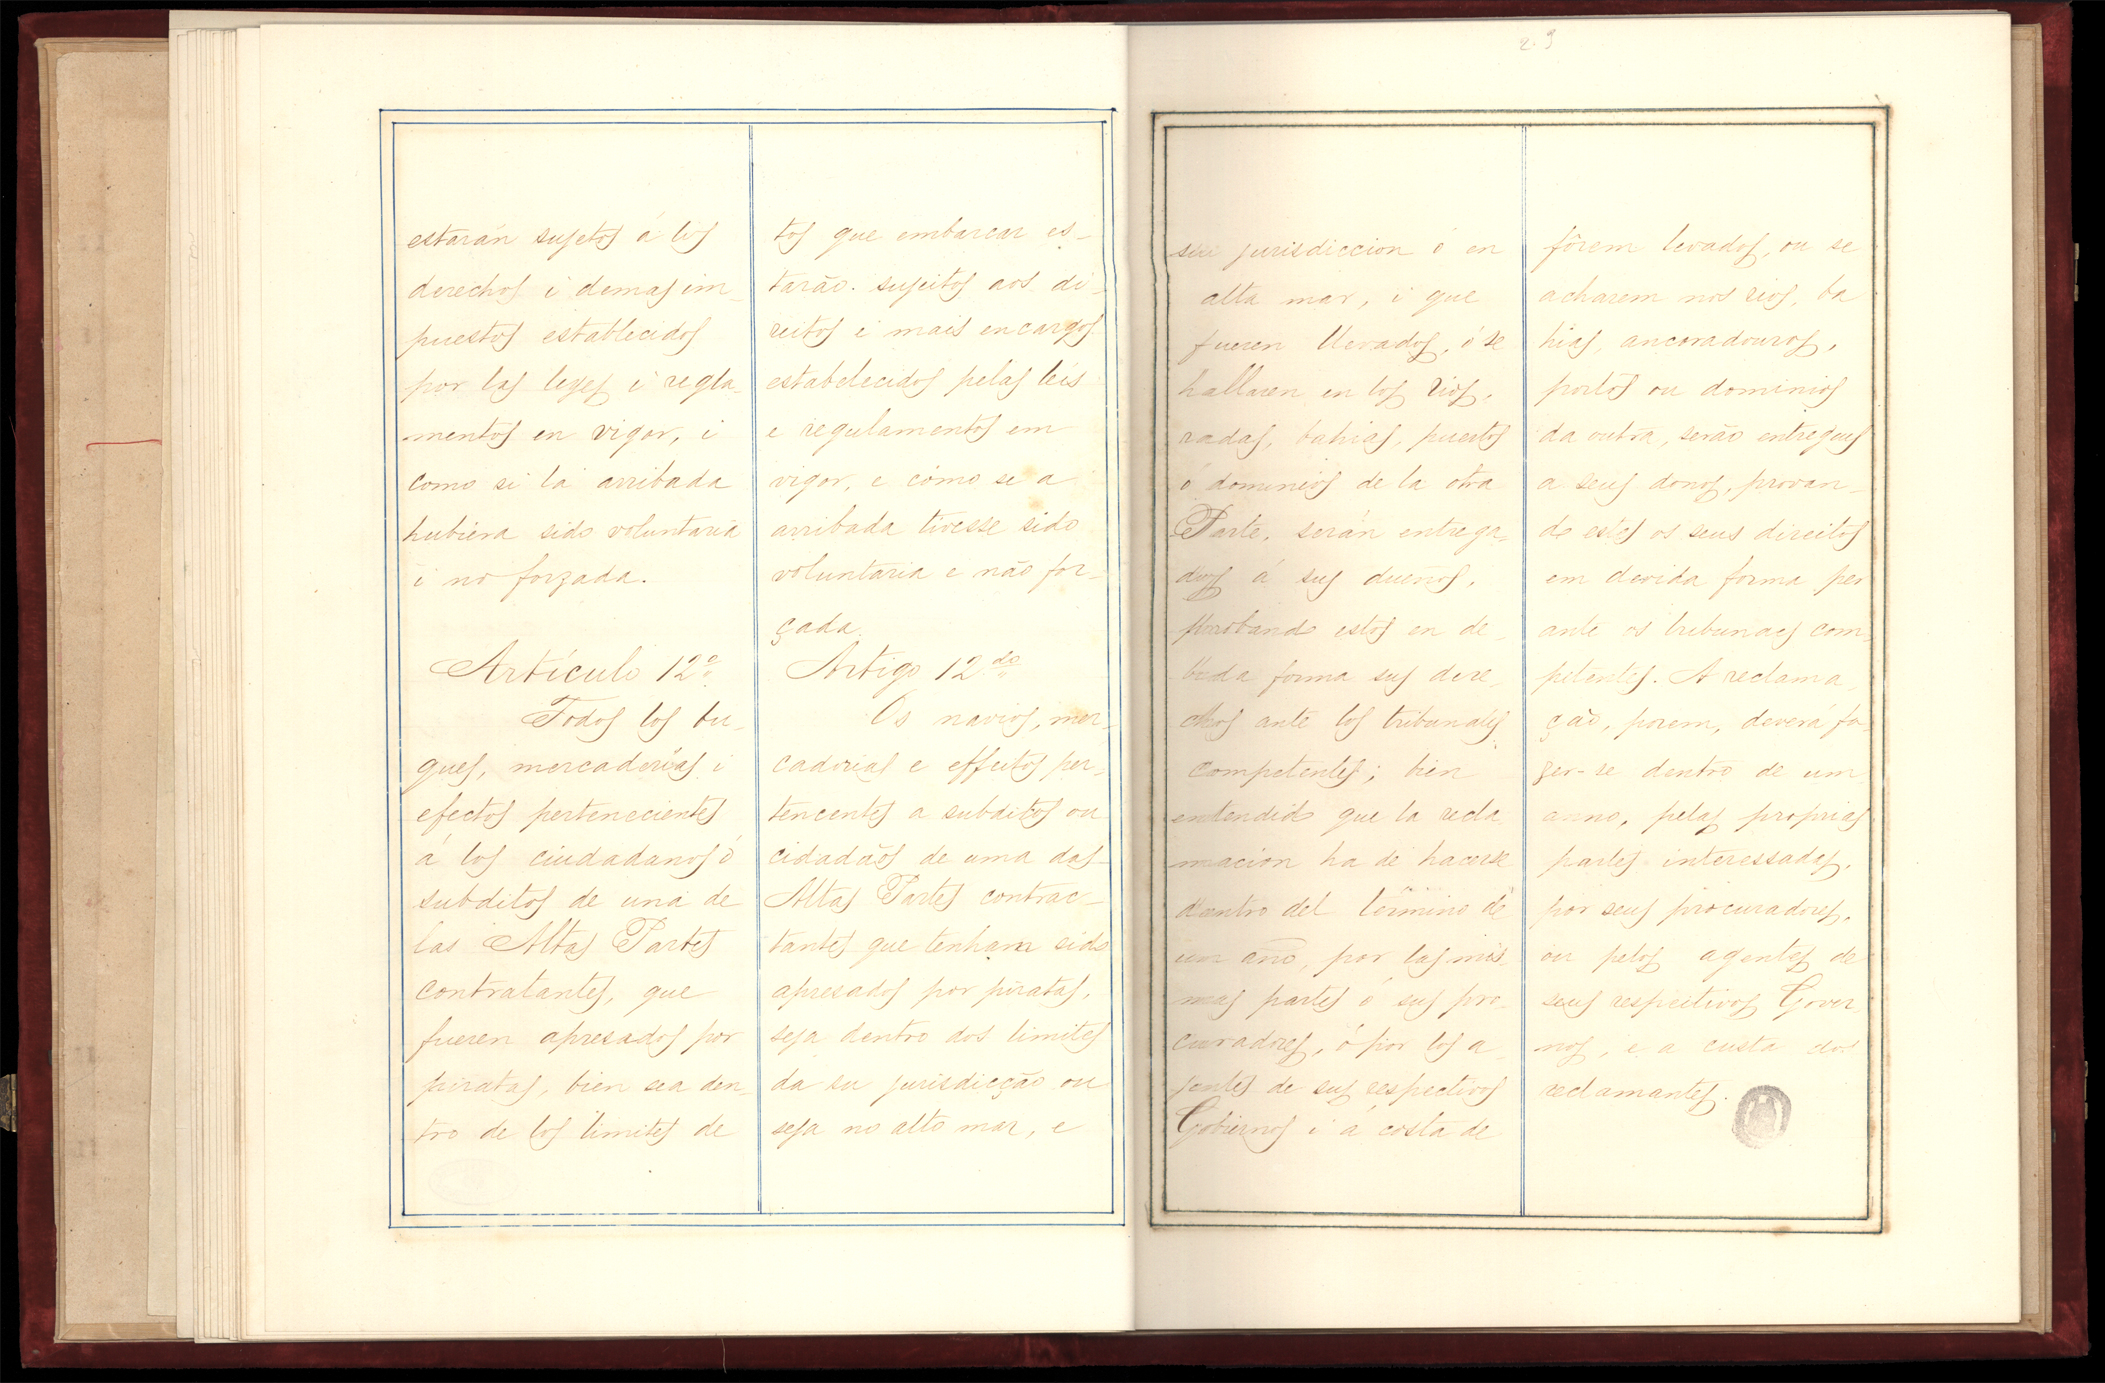 estarán sujetos á los
derechos i demas im-
puestos establecidos
por las leyes i regla-
mentos en vigor, i
como si la arribada
hubiera sido voluntaria
i no forzada.
Artículo 12º
Todos los bu-
ques, mercaderias i
efectos pertenecientes
á los ciudadanos ó
subditos de una de
las Altas Partes
contratantes, que
fueren apresados por
piratas, bien sea den-
tro de los limites de
tos que embarcar es-
tarão sujeitos aos di-
reitos e mais encargos
estabelecidos pelas leis
e regulamentos em
vigor, e cómo se a
arribada tivesse sido
voluntaria e não for-
çada.
Artigo 12do
Os navios, mer-
cadorias e effeitos per-
tencentes a subditos ou
cidadãos de uma das
Altas Partes contrac-
tantes que tenham sido
apresados por piratas,
seja dentro dos limites
da su jurisdicção ou
seja no alto mar, e
29
su jurisdiccion ó en
alta mar, i que
fueren llevados, ó se
hallaren en los rios,
radas, bahias, puertos
ó dominios de la otra
Parte, serán entrega-
dos á sus dueños,
probando estos en de-
bida forma sus dere-
chos ante los tribunales
competentes; bien
entendido que la recla-
macion ha de hacerse
dentro del término de
un año, por las mis-
mas partes ó sus pro-
curadores, ó por los a-
jentes de sus respectivos
Gobiernos i á costa de
fôrem levados, ou se
acharem nos rios, ba
hias, ancoradouros,
portos ou dominios
da outra, serão entregues
a seus donos, provan-
do estes os seus direitos
em devida forma per
ante os tribunaes com-
petentes. A reclama-
ção, porem, deverá fa-
zer-se dentro de um
anno, pelas proprias
partes interessadas,
por seus procuradores,
ou pelos agentes de
seus respectivos Gover-
nos, e a custa dos
reclamantes.